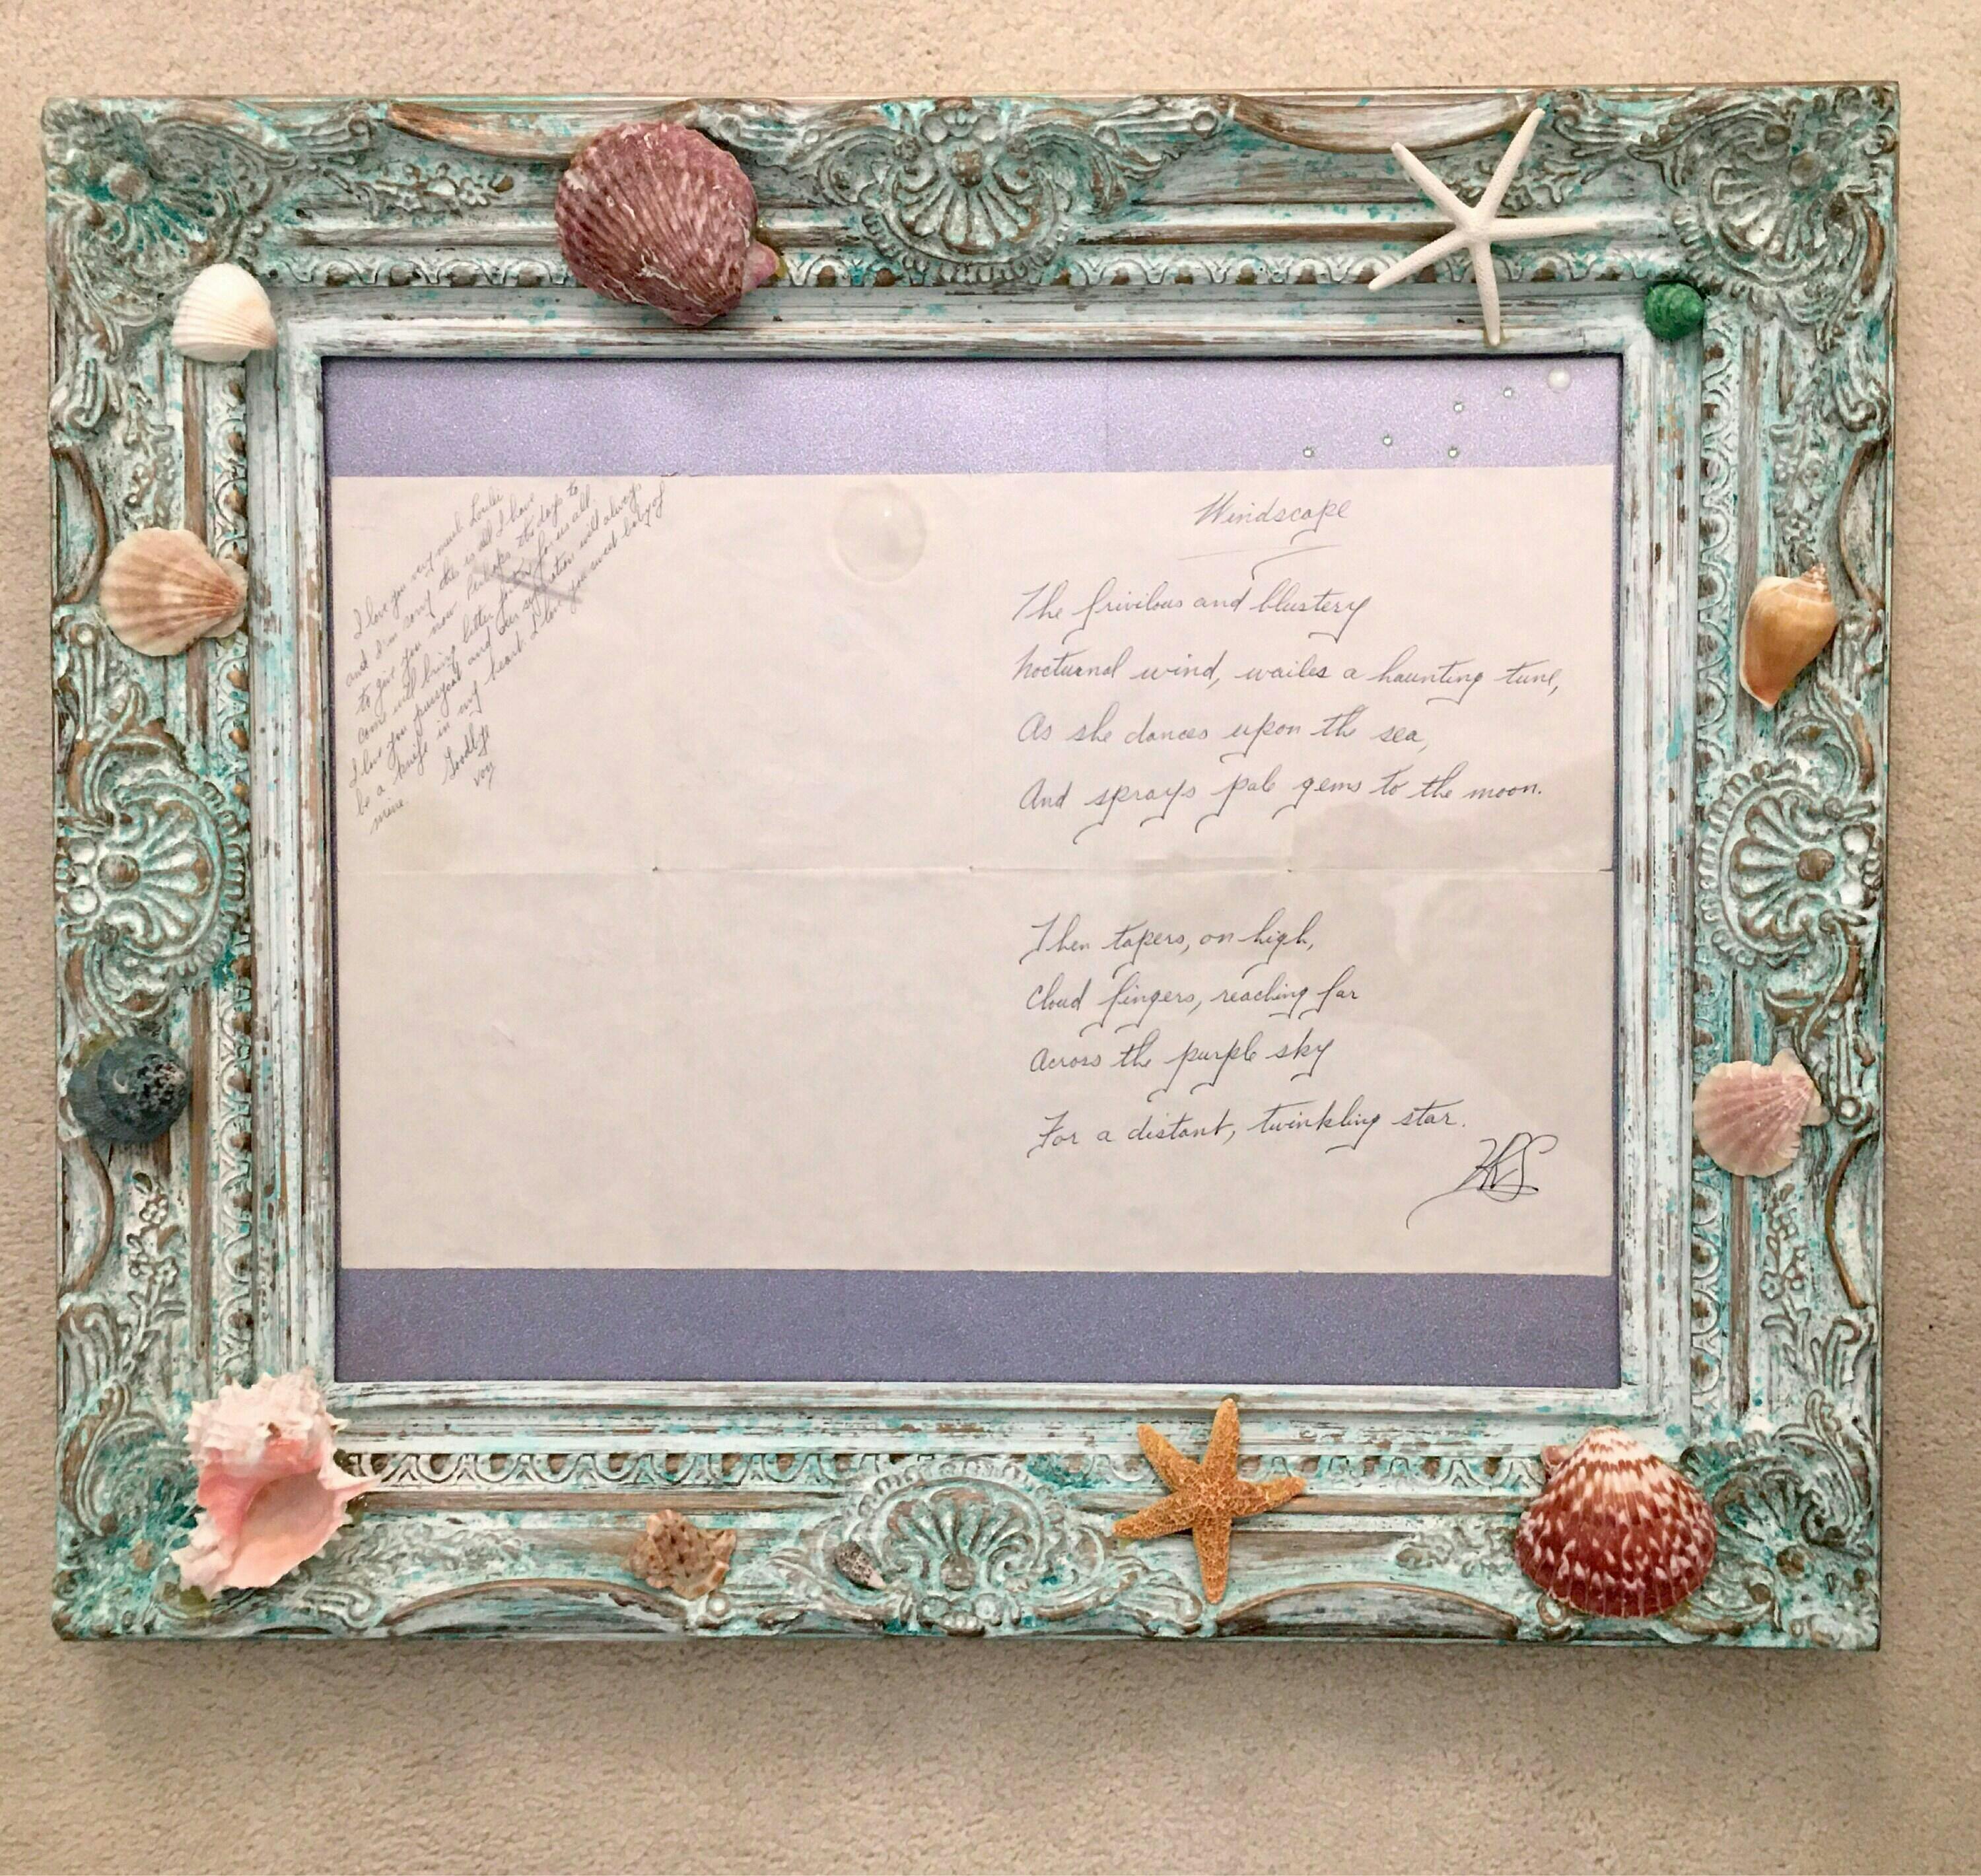 I love you very much Louise
and I'm sorry this is all I have
to give you now. Perhaps the days to
come will bring better for us all.
I love you pussycat and our separation will always
be a knife in my heart. I love you sweet baby of
mine.
Goodbye
Windscape
The frivilous and blustery
Nocturnal wind, wailes a haunting tune,
As she dances upon the sea,
And sprays pale gems to the moon.
Then tapers, on high,
Cloud fingers, reaching far
Across the purple sky
For a distant, twinkling star.